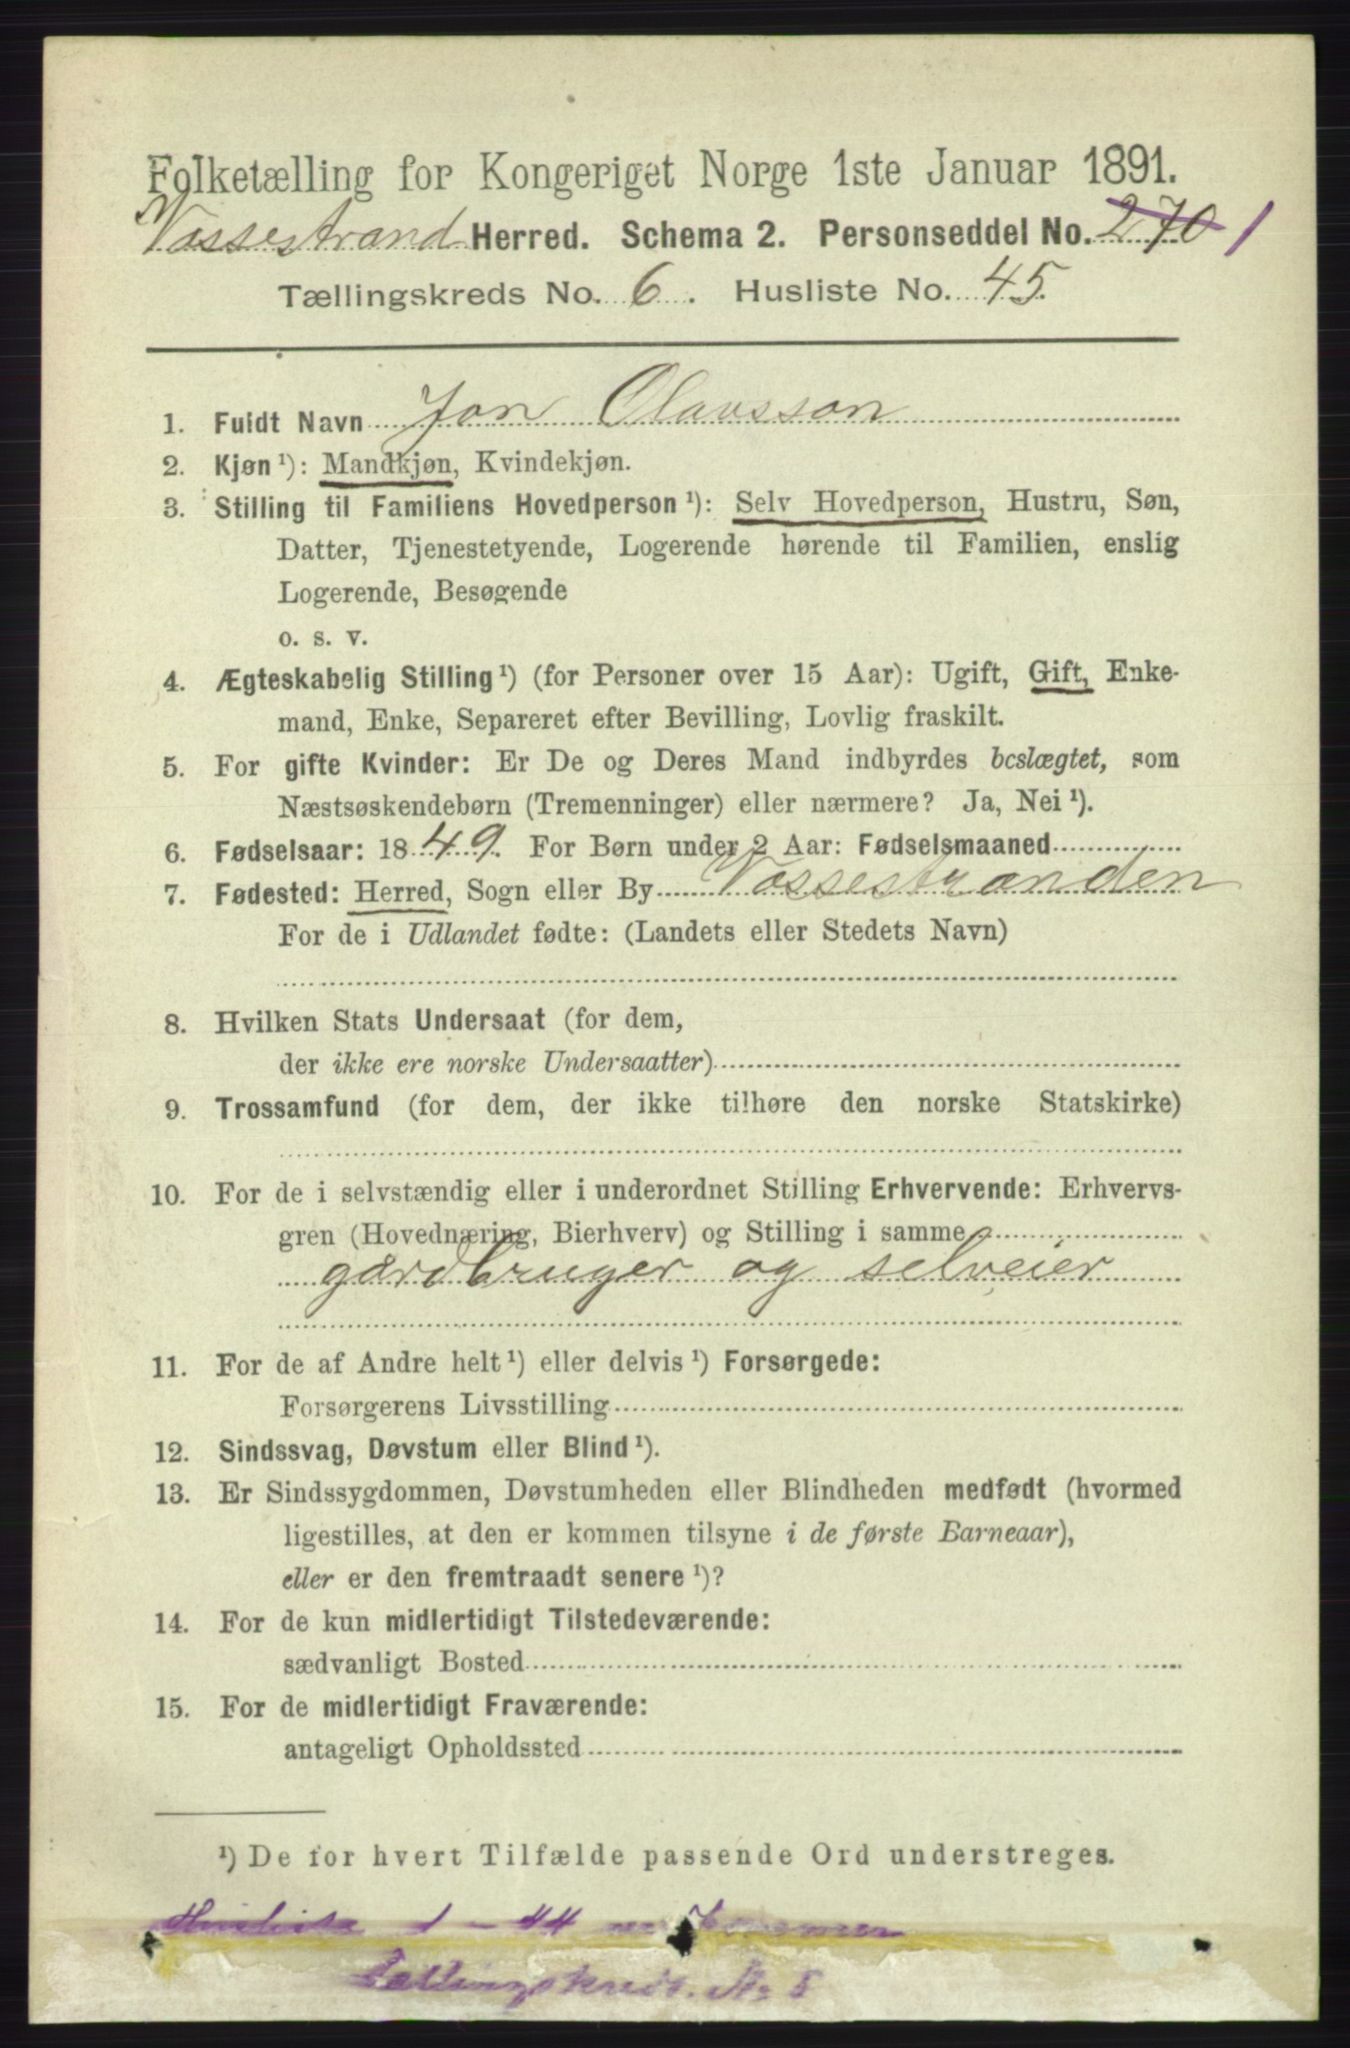 Folketælling for Kongeriget Norge 1ste Januar 1891.
Vossestrand Herred. Schema 2. Personseddel No. 270 1
Tællingskreds No. 6. Husliste No. 45.
1. Fuldt Navn Jon Olavsson
2. Kjøn ¹): Mandkjøn, Kvindekjøn.
3. Stilling til Familiens Hovedperson ¹): Selv Hovedperson, Hustru, Søn,
Datter, Tjenestetyende, Logerende hørende til Familien, enslig
Logerende, Besøgende
o. s. v.
4. Ægteskabelig Stilling ¹) (for Personer over 15 Aar): Ugift, Gift, Enke-
mand, Enke, Separeret efter Bevilling, Lovlig fraskilt.
5. For gifte Kvinder: Er De og Deres Mand indbyrdes beslægtet, som
Næstsøskendebørn (Tremenninger) eller nærmere? Ja, Nei ¹).
6. Fødselsaar: 1849. For Børn under 2 Aar: Fødselsmaaned
7. Fødested: Herred, Sogn eller By Vossestranden
For de i Udlandet fødte: (Landets eller Stedets Navn)
8. Hvilken Stats Undersaat (for dem,
der ikke ere norske Undersaatter)
9. Trossamfund (for dem, der ikke tilhøre den norske Statskirke)
10. For de i selvstændig eller i underordnet Stilling Erhvervende: Erhvervs-
gren (Hovednæring, Bierhverv) og Stilling i samme
gårdbruger og selveier
11. For de af Andre helt ¹) eller delvis ¹) Forsørgede:
Forsørgerens Livsstilling
12. Sindssvag, Døvstum eller Blind ¹).
13. Er Sindssygdommen, Døvstumheden eller Blindheden medfødt (hvormed
ligestilles, at den er kommen tilsyne i de første Barneaar),
eller er den fremtraadt senere ¹)?
14. For de kun midlertidigt Tilstedeværende:
sædvanligt Bosted
15. For de midlertidigt Fraværende:
antageligt Opholdssted
¹) De for hvert Tilfælde passende Ord understreges.
Husliste 1 - 44
Tællingskreds. No 5